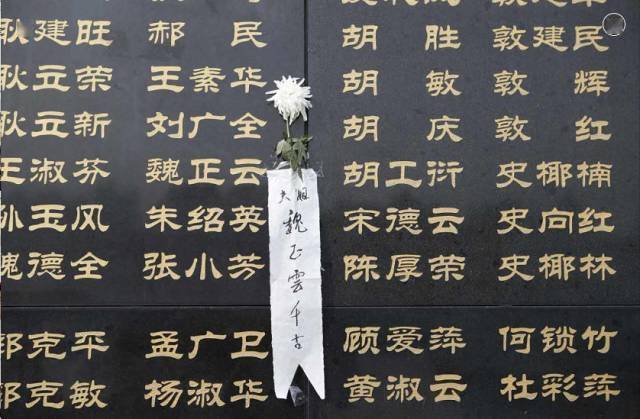 耿建旺 郝民 胡胜 敦建民
耿立荣 王素华 胡敏 敦辉
耿立新 刘广全 胡庆 敦红
王淑芬 魏正云 胡工衍 史椰楠
孙玉风 朱绍英 宋德云 史向红
德全 张小芳 陈厚荣 史椰林
克平 孟广卫 顾爱萍 何锁竹
克敏 杨淑华 黄淑云 杜彩萍
大姐
魏正雲千古